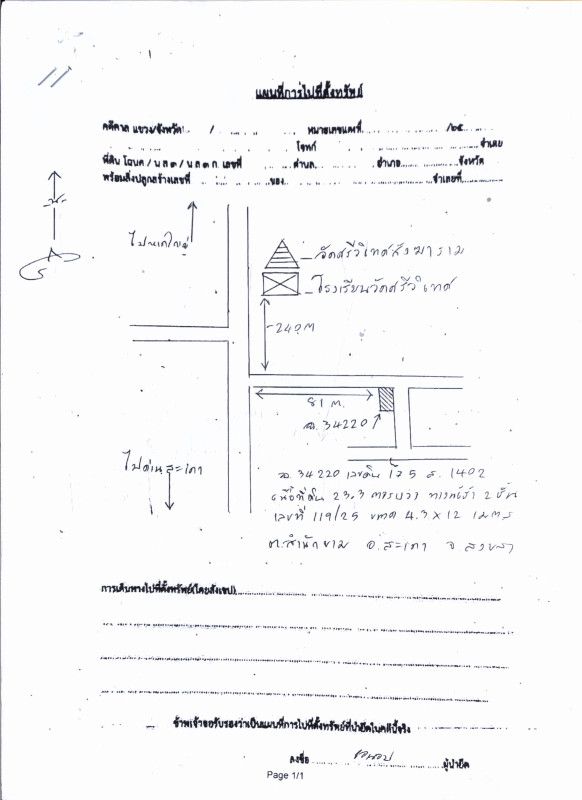 แผนที่การไปที่ตั้งทรัพย์
คดีศาล แขวง/จังหวัด / หมายเลขแดงที่ /๒๕
โจทก์ จำเลย
ที่ดิน โฉนด / น.ส.๓ / น.ส.๓ ก. เลขที่ ตำบล อำเภอ จังหวัด
พร้อมสิ่งปลูกสร้างเลขที่ ของ จำเลยที่
ไปหาดใหญ่
วัดศรีวิเทศสังฆาราม
โรงเรียนวัดศรีวิเทศ
240 m
81 m.
ฉ. 34220
ไปด่านสะเดา
ฉ. 34220 เลขดิน 1402
เนื้อที่ดิน 23.3 ตารางวา 2 ชั้น
เลขที่ 119/25 ขนาด 4.3 x 12 เมตร
ต.สำนักขาม อ.สะเดา จ สงขลา
การเดินทางไปที่ตั้งทรัพย์(โดยสังเขป)
ข้าพเจ้าขอรับรองว่าเป็นแผนที่การไปที่ตั้งทรัพย์ที่นำยึดในคดีนี้จริง
ลงชื่อ ผู้นำยึด
Page 1/1